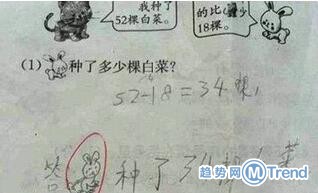 我种了
52棵白菜。
的比 少
18棵。
(1) 种了多少棵白菜?
52-18=34棵,
答 种了34棵白菜
趋势网 Trend